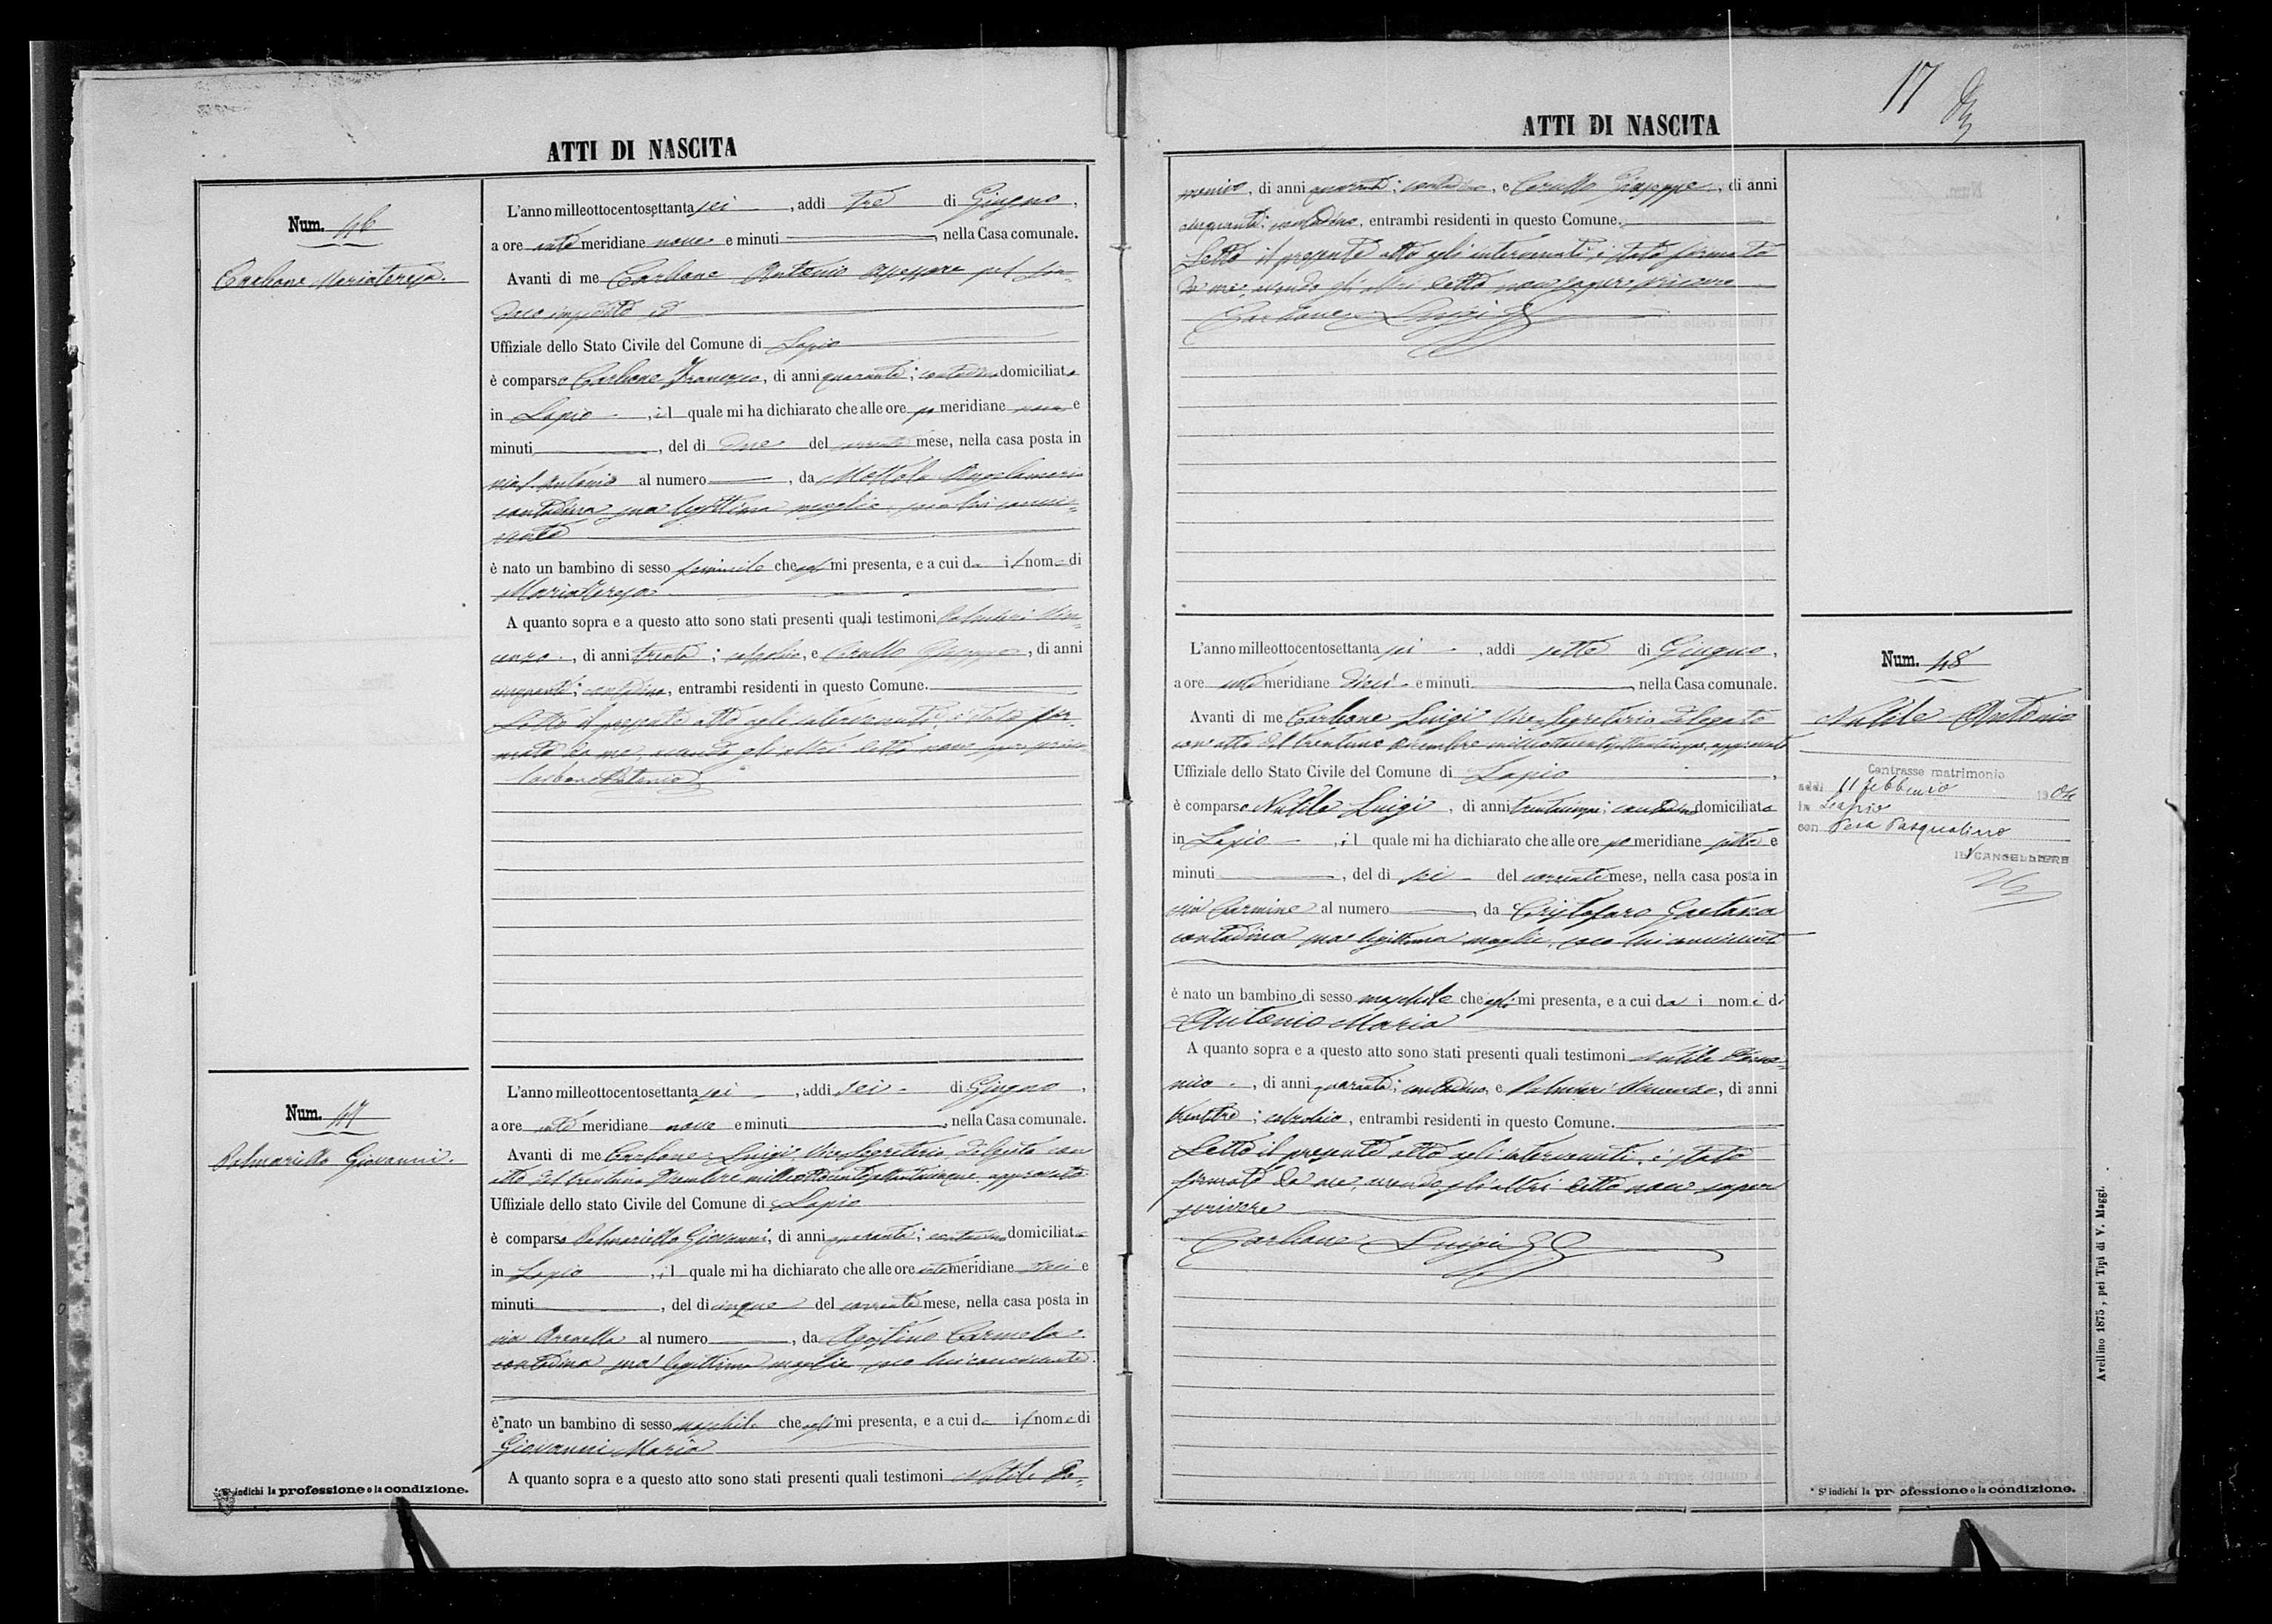 ATTI DI NASCITA
Num. 46
Carbone Mariateresa.
L'anno milleottocentosettanta sei, addi tre di Giugno,
a ore anti meridiane nove e minuti, nella Casa comunale.
Avanti di me Carbone Antonio Assessore pel Sin=
daco impedito ed
Uffiziale dello Stato Civile del Comune di Lapio
è comparso Carbone Francesco, di anni quaranta; contadino domiciliato
in Lapio, il quale mi ha dichiarato che alle ore po meridiane nove e
minuti, del di due del corrente mese, nella casa posta in
via S. Antonio al numero, da Mottola Angelamaria
contadina sua legittima moglie, seco lui convi=
vente
è nato un bambino di sesso feminile che egli mi presenta, e a cui da il nome di
Mariateresa
A quanto sopra e a questo atto sono stati presenti quali testimoni Palmieri Vin=
cenzo, di anni trenta; calzolaio, e Cerullo Giuseppe, di anni
cinquanta; contadino, entrambi residenti in questo Comune.
Letto il presente atto agli intervenuti, è stato fir=
mato da me, avendo gli altri detto non saper
Carbone Antonio
Num. 47
Palmariello Giovanni.
L'anno milleottocentosettanta sei, addi sei di Giugno,
a ore anti meridiane nove e minuti, nella Casa comunale.
Avanti di me Carbone Luigi Vice Segretario delegato con
atto del trentuno Dicembre milleottocentosettantacinque, approvato
Uffiziale dello stato Civile del Comune di Lapio
è comparso Palmariello Giovanni, di anni quaranta; contadino domiciliato
in Lapio, il quale mi ha dichiarato che alle ore anti meridiane dieci e
minuti, del di cinque del corrente mese, nella casa posta in
via Arenella al numero, da Agostino Carmela
contadina sua legittima moglie, seco lui convivente
è nato un bambino di sesso maschile che egli mi presenta, e a cui da il nome di
Giovanni Maria
A quanto sopra e a questo atto sono stati presenti quali testimoni Nutile Do=
* Si indichi la professione o la condizione.
17
ATTI DI NASCITA
menico, di anni quaranta; contadino, e Cerullo Giuseppe, di anni
cinquanta; contadino, entrambi residenti in questo Comune.
Letto il presente atto agli intervenuti, è stato firmato
da me, avendo gli altri detto non sapere scrivere
Carbone Luigi
L'anno milleottocentosettanta sei, addi sette di Giugno,
a ore anti meridiane dieci e minuti, nella Casa comunale.
Avanti di me Carbone Luigi Vice Segretario delegato
con atto del trentuno Dicembre milleottocentosettantacinque, approvato
Uffiziale dello Stato Civile del Comune di Lapio,
è comparso Nutile Luigi, di anni trentacinque; contadino domiciliato
in Lapio, il quale mi ha dichiarato che alle ore po meridiane sette e
minuti, del di sei del corrente mese, nella casa posta in
via Carmine al numero, da Cristofaro Gaetana
contadina sua legittima moglie, seco lui convivente
è nato un bambino di sesso maschile che egli mi presenta, e a cui da i nomi di
Antonio Maria
A quanto sopra e a questo atto sono stati presenti quali testimoni Nutile Dome=
nico, di anni quaranta; contadino, e Palmieri Vincenzo, di anni
; calzolaio, entrambi residenti in questo Comune.
Letto il presente atto agli intervenuti, è stato
firmato da me, avendo gli altri detto non saper
scrivere
Carbone Luigi
Num. 48
Nutile Antonio
Contrasse matrimonio
addi 11 febbraio 1904
in Lapio
con Pasqualina
IL CANCELLIERE
* Si indichi la professione o la condizione.
Avellino 1875, pei Tipi di V. Maggi.